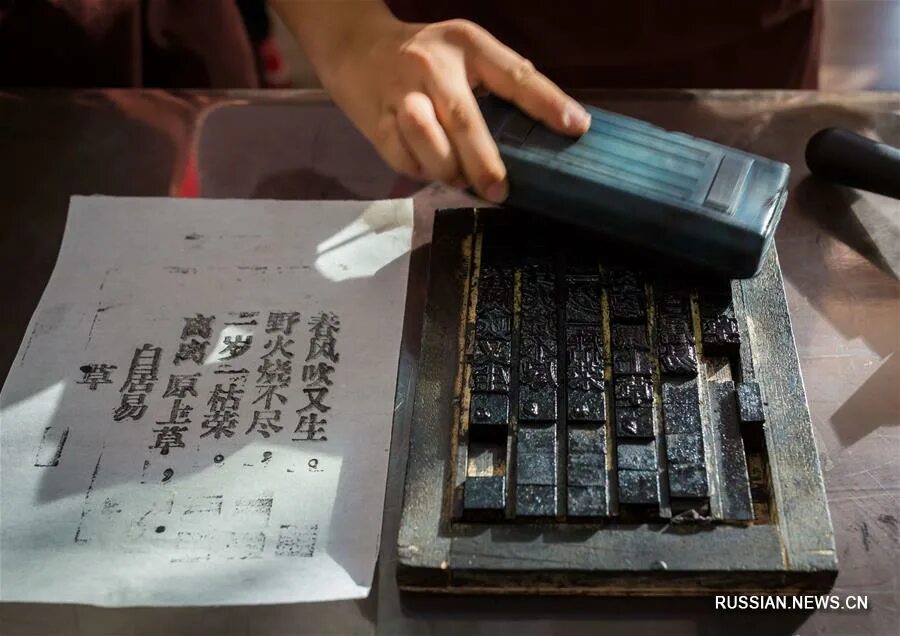 草
自居易
离离原上草，
二岁一枯荣。
野火烧不尽，
春风吹又生。
RUSSIAN.NEWS.CN